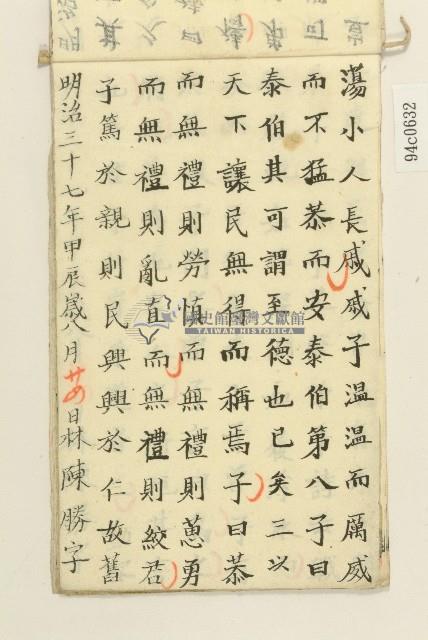 蕩小人長戚戚子温温而厲威
而不猛恭而安泰伯第八子曰
泰伯其可謂至德也已矣三以
天下讓民無得而稱焉子曰恭
而無禮則勞慎而無禮則葸勇
而無禮則亂直而無禮則絞君
子篤於親則民興興於仁故舊
明治三十七年甲辰歲八月廿日林陳勝字
國史館臺灣文獻館
TAIWAN HISTORICA
94c0632